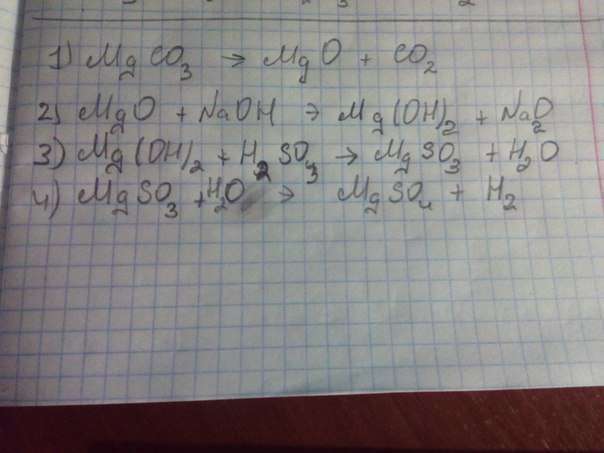 1) MgCO₃ → MgO + CO₂
2) MgO + NaOH → Mg(OH)₂ + NaO₂
3) Mg(OH)₂ + H₂SO₃ → MgSO₃ + H₂O
4) MgSO₃ + H₂O → MgSO₄ + H₂